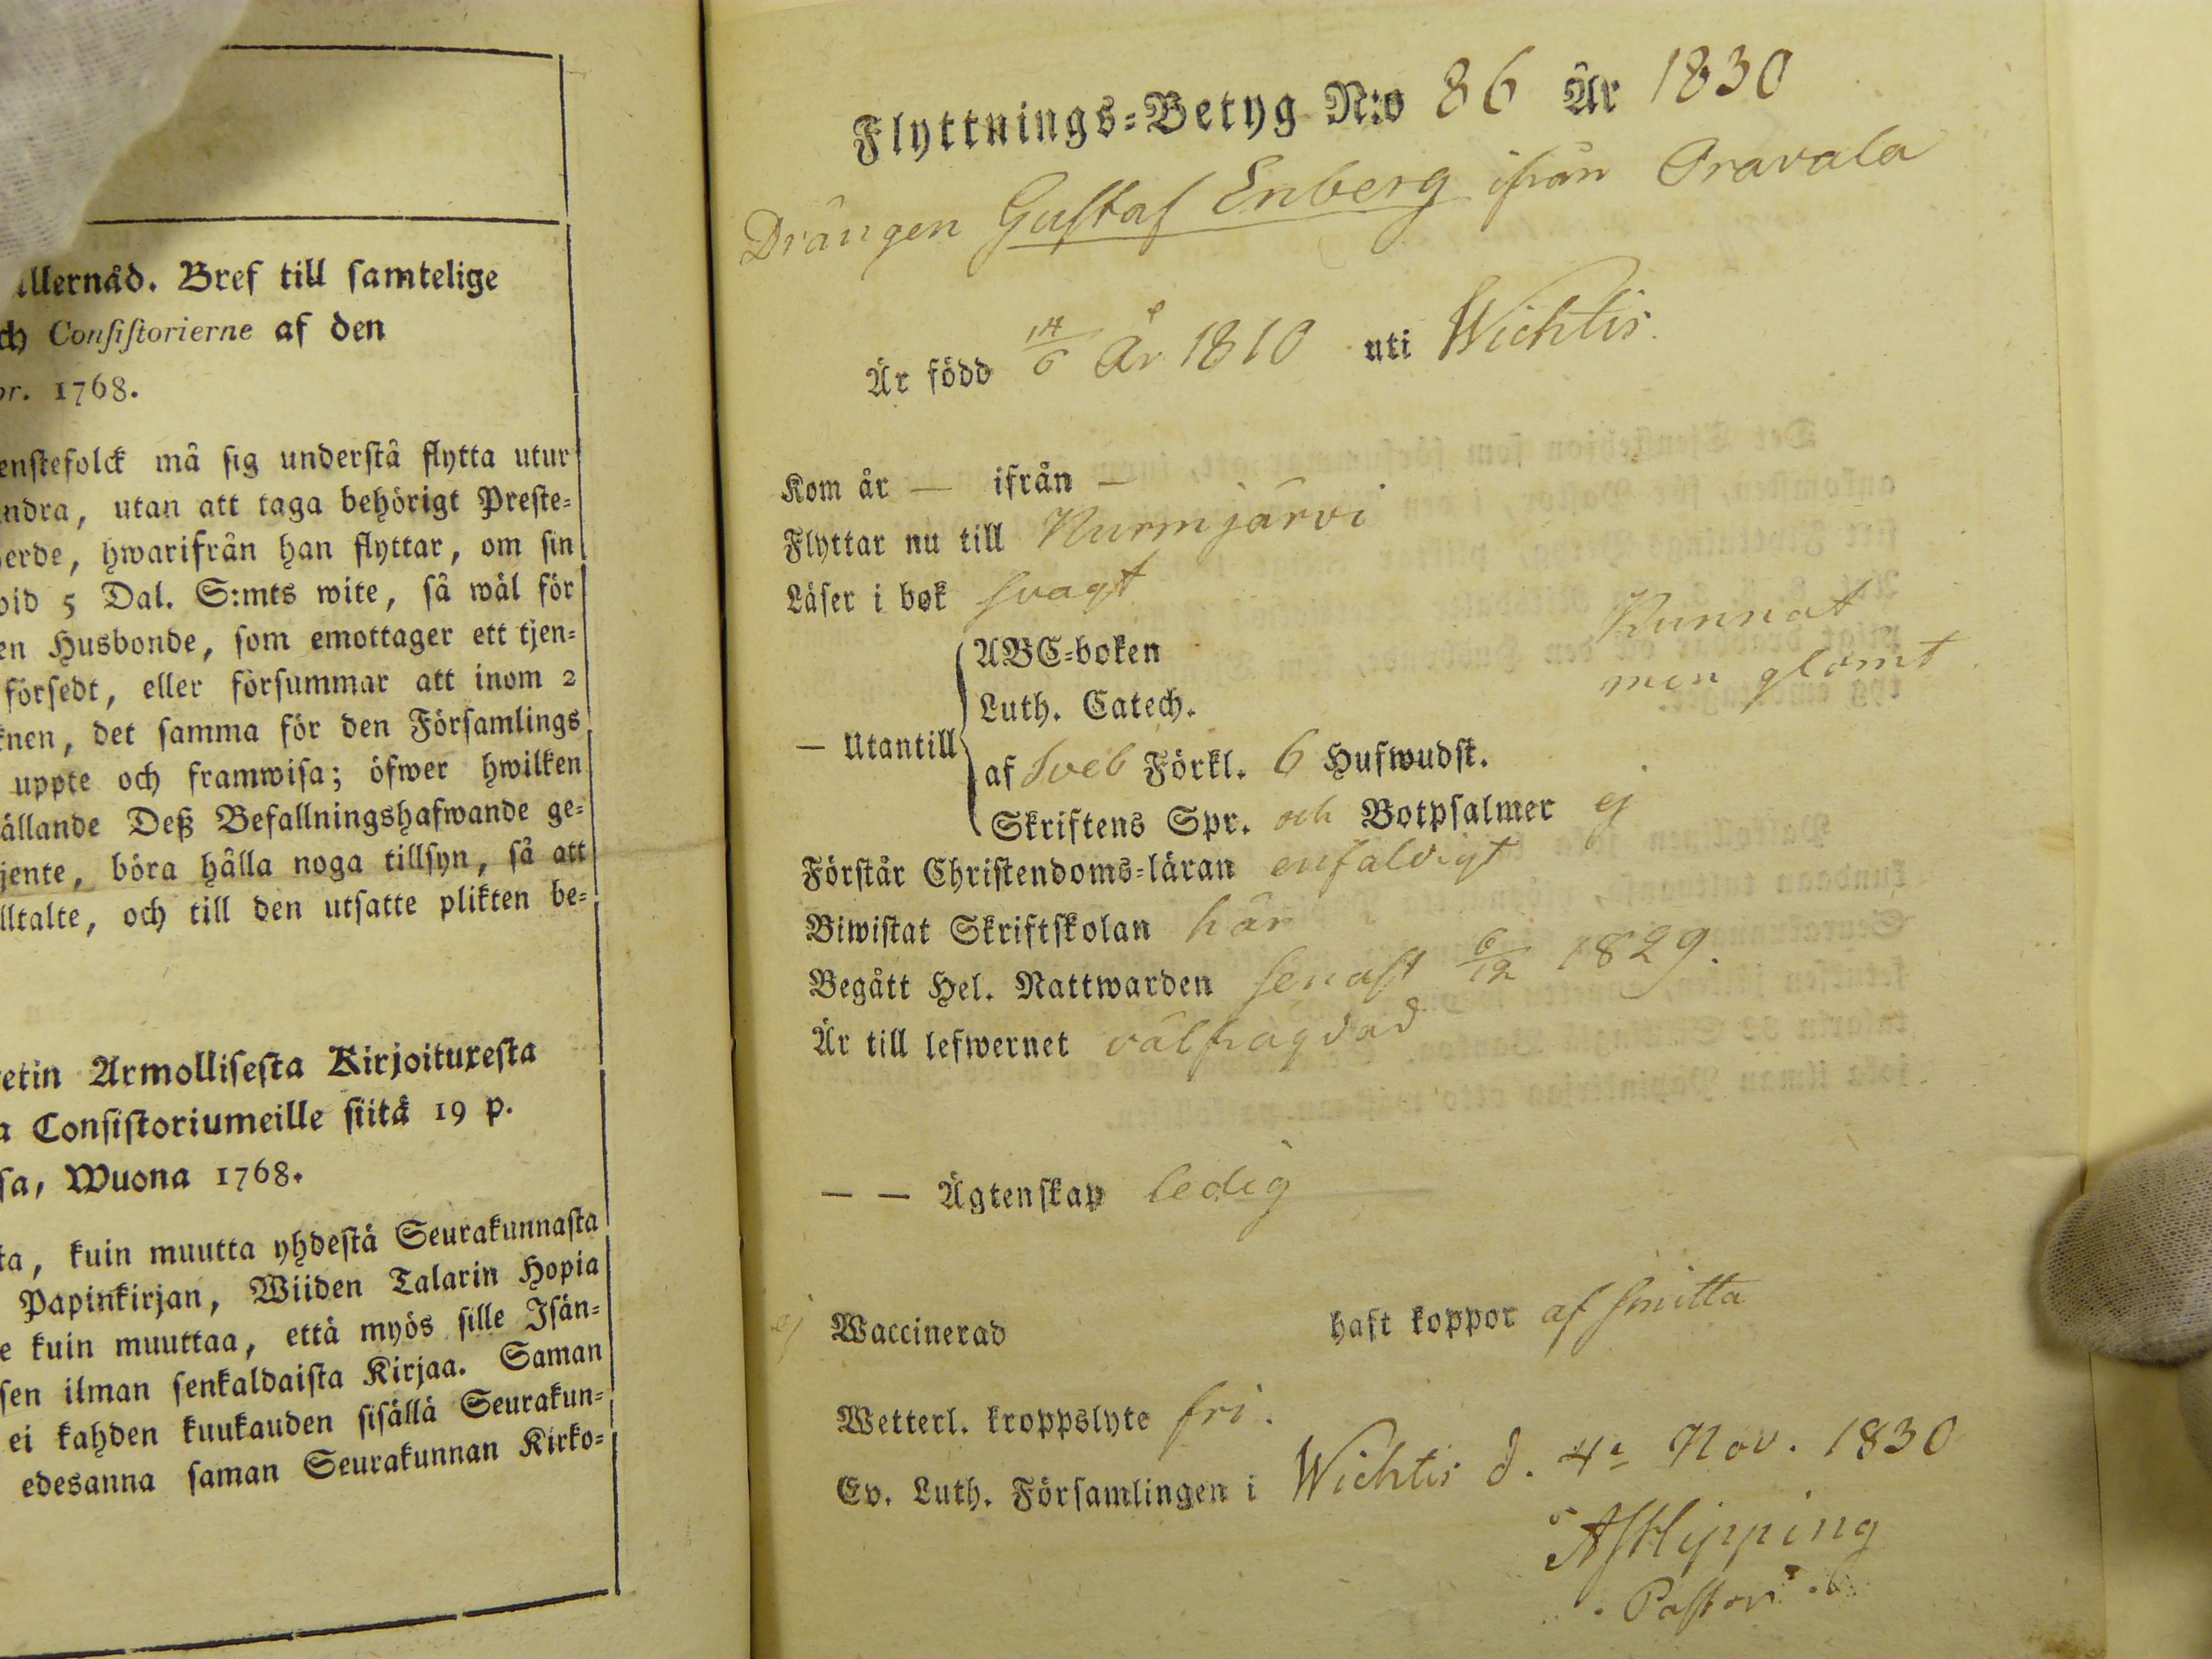 allernåd. Bref till samtelige
och Consistorierne af den
br. 1768.
enstefolck må sig understå flytta utur
ndra, utan att taga behörigt Preste-
erde, hwarifrån han flyttar, om sin
vid 5 Dal. S:mts wite, så wäl för
en Husbonde, som emottager ett tjen-
försedt, eller försummar att inom 2
knen, det samma för den Församlings
uppte och framwisa; öfwer hwilken
ällande Deß Befallningshafwande ge-
jente, böra hålla noga tillsyn, så att
lltalte, och till den utsatte plikten be-
etin Armollisesta Kirjoituxesta
a Consistoriumeille siitä 19 p.
sa, Wuona 1768.
ta, kuin muutta yhdestä Seurakunnasta
Papinkirjan, Wiiden Talarin Hopia
e kuin muuttaa, että myös sille Isän-
sen ilman senkaldaista Kirjaa. Saman
ei kahden kuukauden sisällä Seurakun-
edesanna saman Seurakunnan Kirko-
Flyttnings-Betyg N:o 86 År 1830
Drängen Gustaf Enberg ifrån Oravala
Är född 14/6 År 1810 uti Wichtis.
Kom år — ifrån —
Flyttar nu till Nurmjärvi
Läser i bok svagt
— Utantill
ABC-boken
Luth. Catech.
Kunnat
men glömt
af Sveb Förkl. 6 Hufwudst.
Skriftens Spr. och Botpsalmer ej
Förstår Christendoms-läran enfaldigt
Biwistat Skriftskolan här
Begått Hel. Nattwarden senast 6/12 1829.
Är till lefwernet välfrägdad
— — Ägtenskap ledig
ej Waccinerad haft koppor af smitta
Wetterl. kroppslyte fri.
Ev. Luth. Församlingen i Wichtis d. 4 Nov. 1830
AJHipping
Pastor